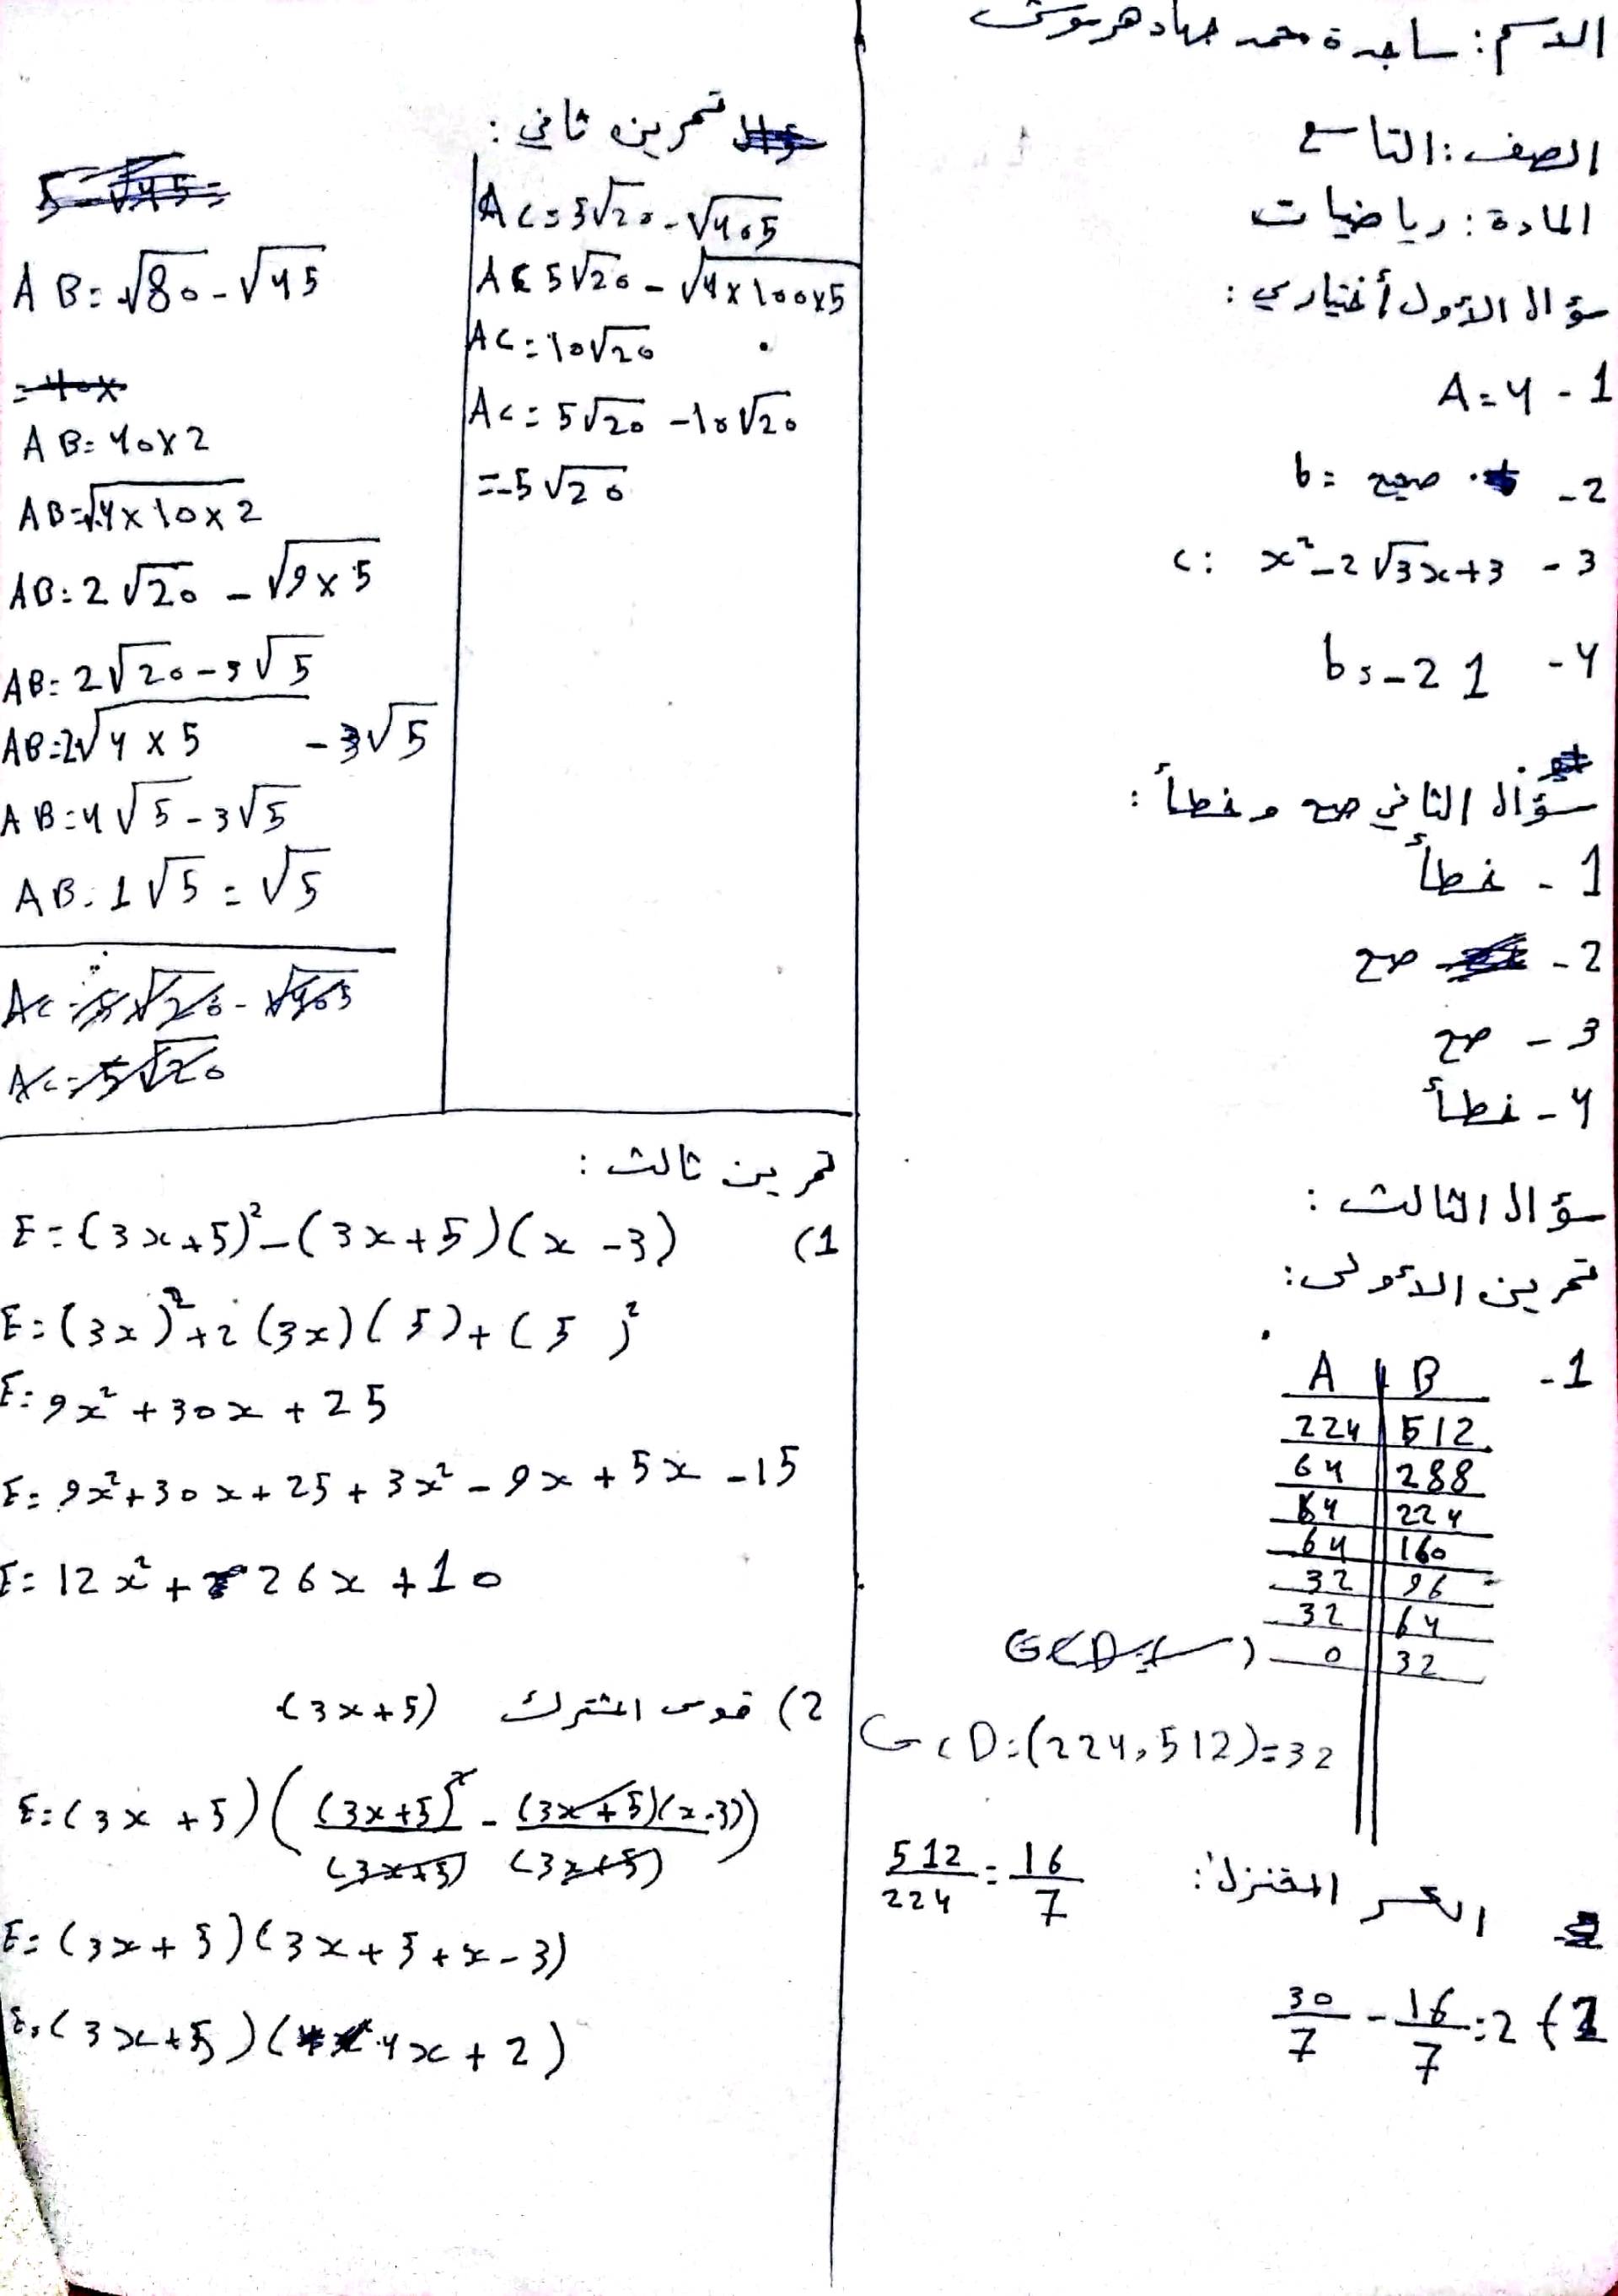 الاسم: ساجدة محمد جهاد هرموش
الصف: التاسع
المادة: رياضيات
سؤال الأول أختياري:
1 - A = 4
2 - b = صحيح
3 - c: x² - 2√3x + 3
4 - b = -2 1
سؤال الثاني صح و خطأ:
1 - خطأ
2 - صح
3 - صح
4 - خطأ
سؤال الثالث:
تمرين الأولى:
1 -
A | B
224 | 512
64 | 288
64 | 224
64 | 160
32 | 96
32 | 64
0 | 32
GCD = (224, 512) = 32
الكسر المختزل: 512/224 = 16/7
2) 30/7 - 16/7 = 2
تمرين ثاني:
AB = √80 - √45
AB = 40x2
AB = √4x10x2
AB = 2√20 - √9x5
AB = 2√20 - 3√5
AB = 2√4x5 - 3√5
AB = 4√5 - 3√5
AB = 1√5 = √5
AC = 5√20 - √405
AC 5√20 - √4x100x5
AC = 10√20
AC = 5√20 - 10√20
= -5√20
تمرين ثالث:
1) E = (3x+5)² - (3x+5)(x-3)
E = (3x)² + 2(3x)(5) + (5)²
E = 9x² + 30x + 25
E = 9x² + 30x + 25 + 3x² - 9x + 5x - 15
E = 12x² + 26x + 10
2) قوس المشترك (3x+5)
E = (3x+5)((3x+5)²/(3x+5) - (3x+5)(x-3)/(3x+5))
E = (3x+5)(3x+5+x-3)
E = (3x+5)(4x+2)